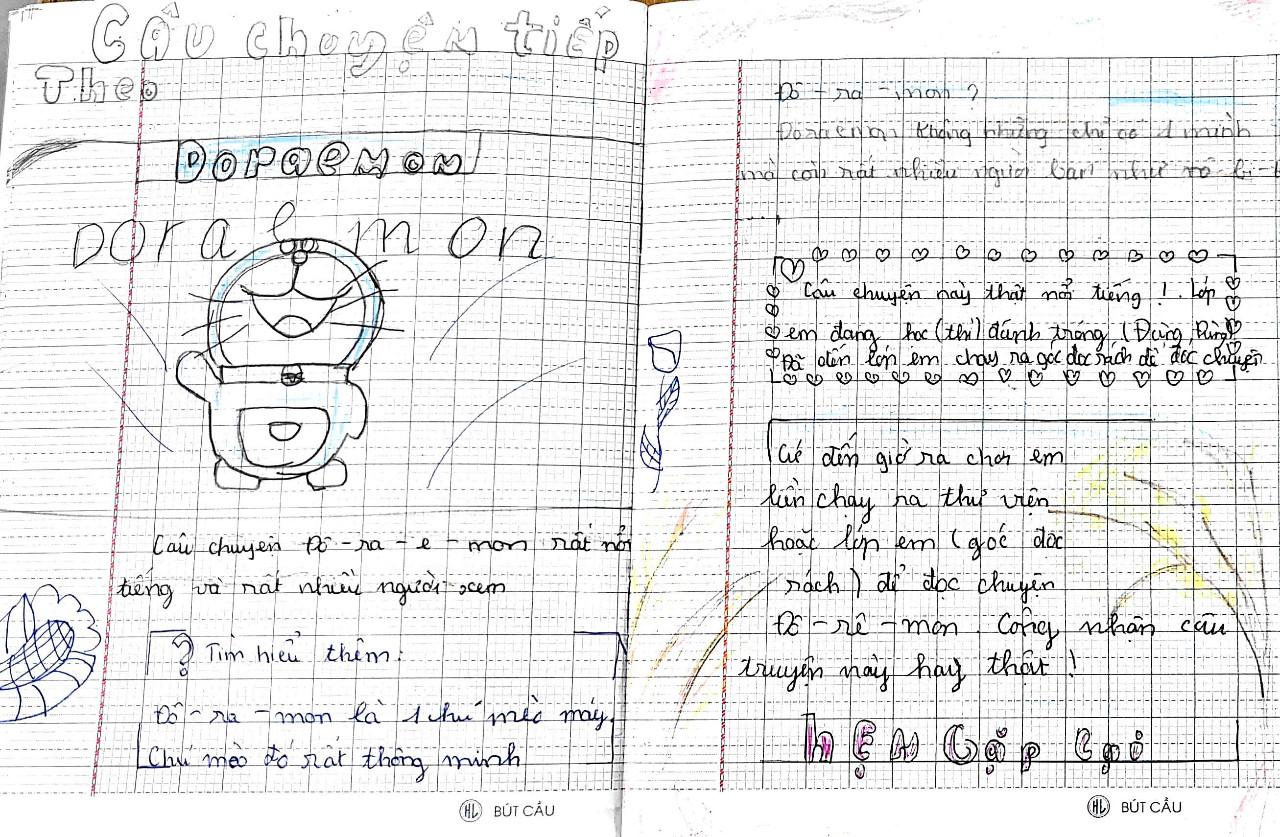 Câu chuyện tiếp
Theo
Doraemon
Doraemon
Câu chuyện Đô-ra-e-mon rất nổi
tiếng và rất nhiều người xem
? Tìm hiểu thêm:
Đô-ra-mon là 1 chú mèo máy.
Chú mèo đó rất thông minh
HL BÚT CẦU
Đô-ra-mon?
Doraemon không những chỉ có 1 mình
mà còn rất nhiều người bạn như nô-bi-t
....
Câu chuyện này thật nổi tiếng!. Lớp
em đang học (thì) đánh trống, (Đùng, Đùng)
Đã đến lớp em chạy ra góc đọc sách để đọc chuyện
Cứ đến giờ ra chơi em
liền chạy ra thư viện
hoặc lớp em (góc đọc
sách) để đọc chuyện
Đô-rê-mon. Công nhận câu
truyện này hay thật!
hẸn Gặp Lại
HL BÚT CẦU